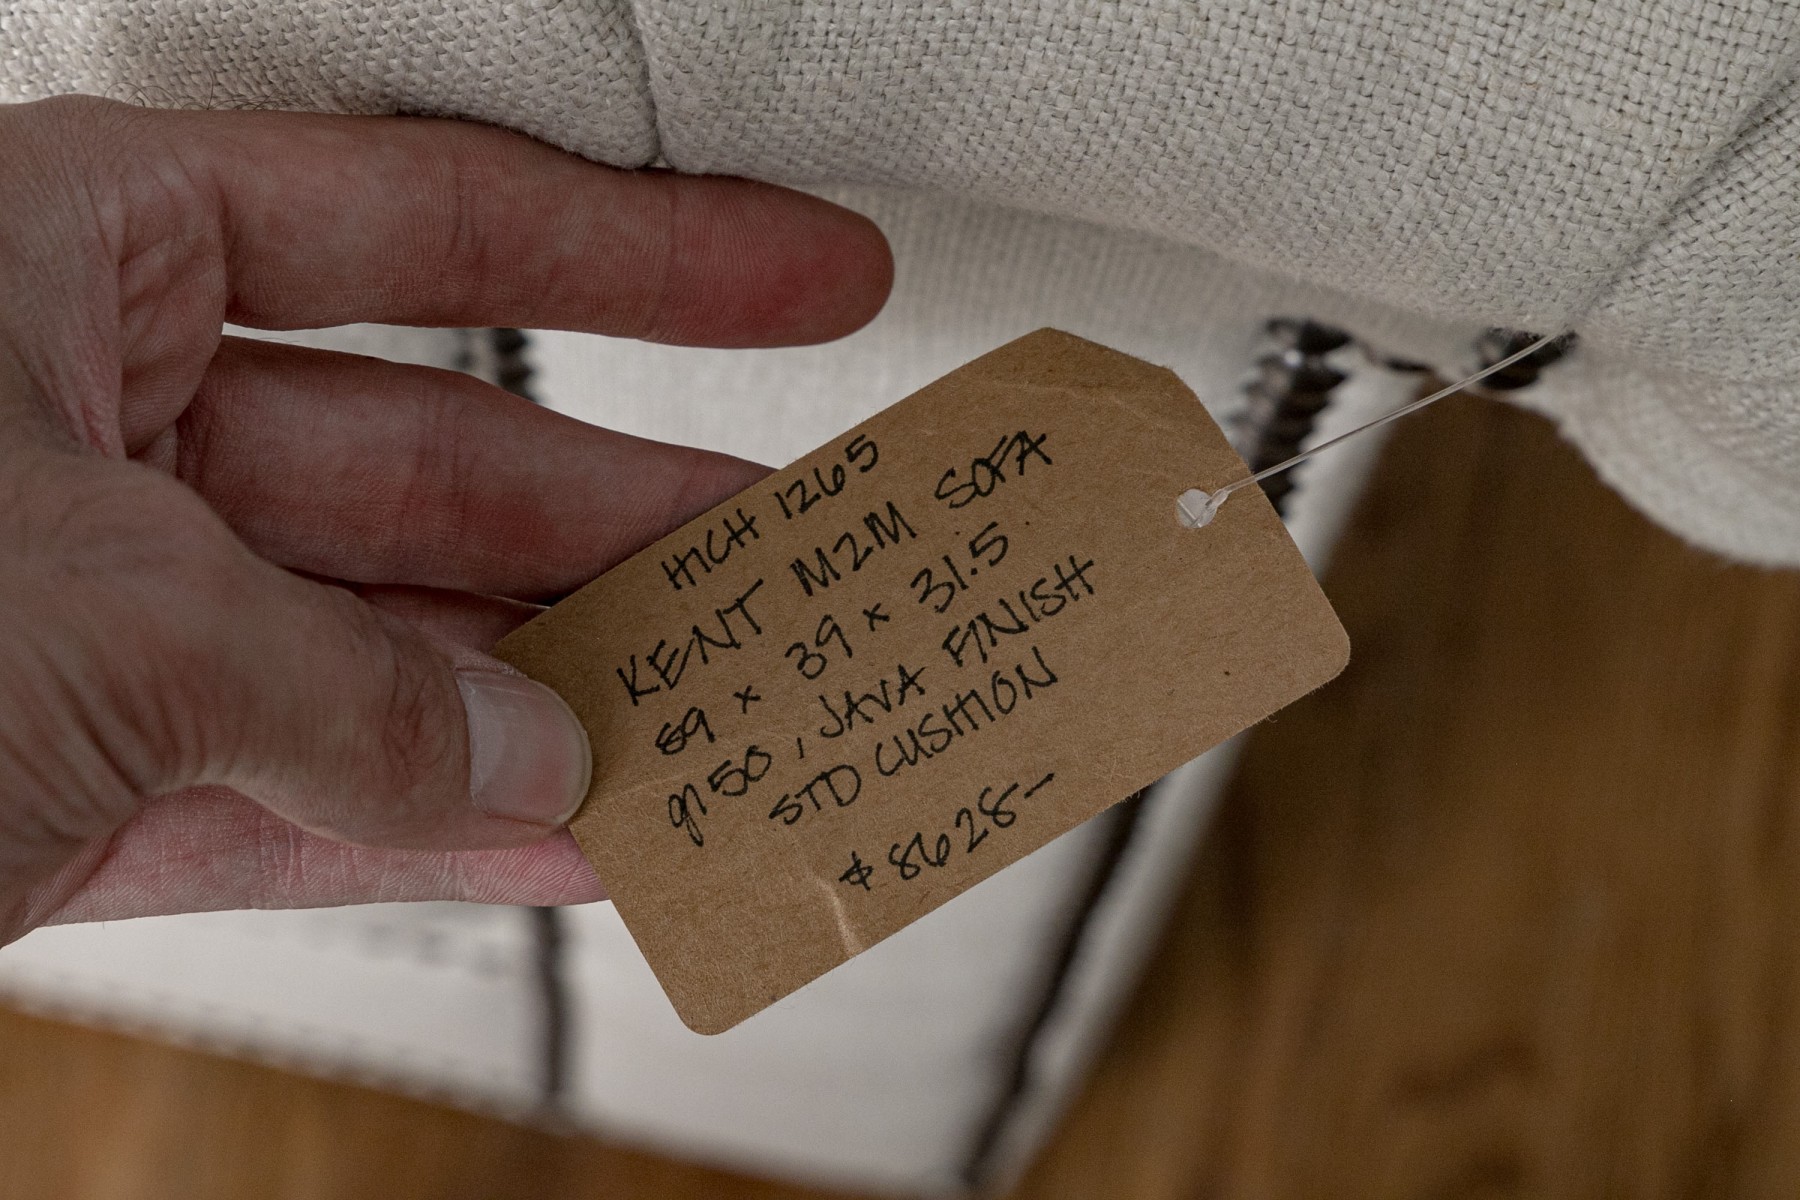 HICH 1265
KENT M2M SOFA
89 x 39 x 31.5
9150, JAVA FINISH
STD CUSHION
$8628-